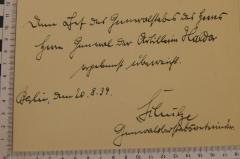 Dem Chef des Generalstabes des Heeres
Herrn General der Artillerie Halder
ergebenst überreicht.
Berlin, den 20.8.39.
Generaloberstabsveterinär